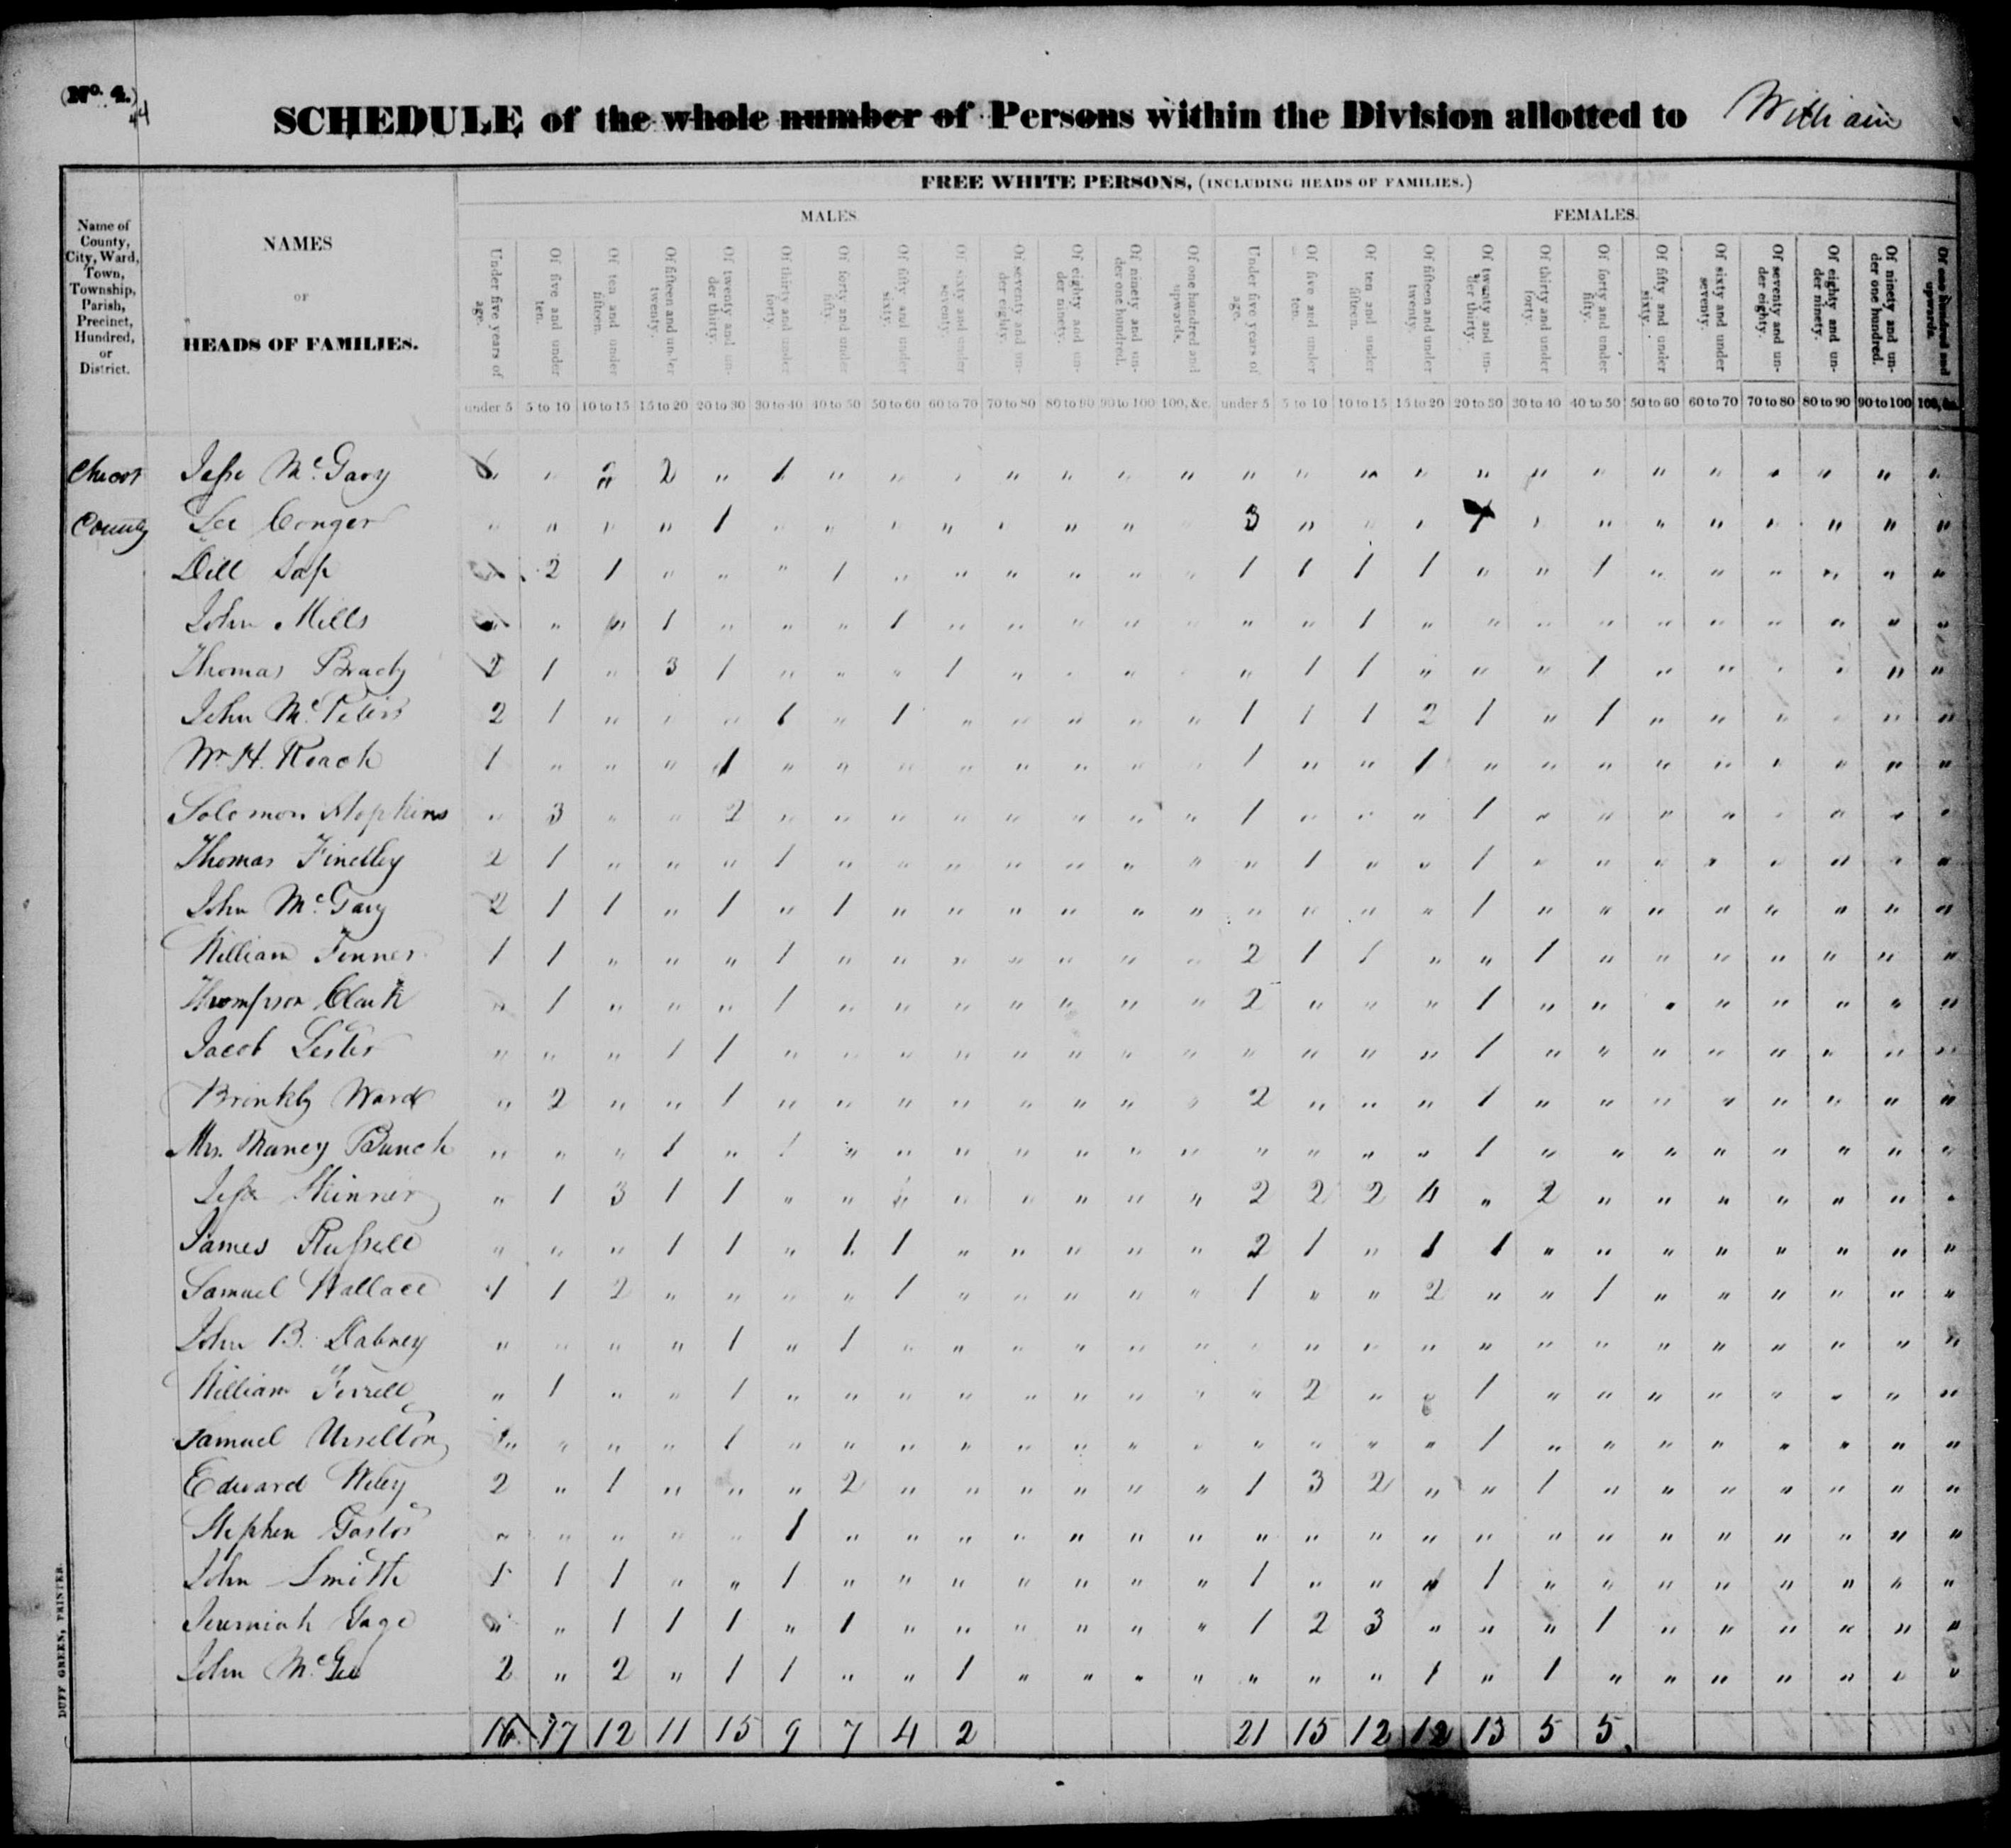 (No. 4.)
44
SCHEDULE of the whole number of Persons within the Division allotted to William
Name of County, City, Ward, Town, Township, Parish, Precinct, Hundred, or District.
NAMES
OF
HEADS OF FAMILIES.
FREE WHITE PERSONS, (INCLUDING HEADS OF FAMILIES.)
MALES.
FEMALES.
Under five years of age.
Of five and under ten.
Of ten and under fifteen.
Of fifteen and under twenty.
Of twenty and under thirty.
Of thirty and under forty.
Of forty and under fifty.
Of fifty and under sixty.
Of sixty and under seventy.
Of seventy and under eighty.
Of eighty and under ninety.
Of ninety and under one hundred.
Of one hundred and upwards.
Under five years of age.
Of five and under ten.
Of ten and under fifteen.
Of fifteen and under twenty.
Of twenty and under thirty.
Of thirty and under forty.
Of forty and under fifty.
Of fifty and under sixty.
Of sixty and under seventy.
Of seventy and under eighty.
Of eighty and under ninety.
Of ninety and under one hundred.
Of one hundred and upwards.
under 5 5 to 10 10 to 15 15 to 20 20 to 30 30 to 40 40 to 50 50 to 60 60 to 70 70 to 80 80 to 90 90 to 100 100, &c. under 5 5 to 10 10 to 15 15 to 20 20 to 30 30 to 40 40 to 50 50 to 60 60 to 70 70 to 80 80 to 90 90 to 100 100, &c.
Chicot Jesse McGary " 2 2 " 1 " " " " " " " " " " " " " " " " " " " "
County Lee Conger " " " " 1 " " " " " " " " 3 " " " 1 " " " " " " " "
Dill Sap 2 1 " " " 1 " " " " " " 1 1 1 1 " " 1 " " " " " "
John Mills " " 1 " " " 1 " " " " " " " 1 " " " " " " " " " "
Thomas Brady 2 1 " 3 1 " " " 1 " " " " " 1 1 " " " 1 " " " " " "
John McPeters 2 1 " " " 1 " 1 " " " " " 1 1 1 2 1 " 1 " " " " " "
Wm H. Roach 1 " " " 1 " " " " " " " " 1 " " 1 " " " " " " " " "
Solomon Hopkins " 3 " " 2 " " " " " " " " 1 " " " 1 " " " " " " " "
Thomas Findley 2 1 " " " 1 " " " " " " " " 1 " " 1 " " " " " " " "
John McGary 2 1 1 " 1 " 1 " " " " " " " " " " 1 " " " " " " " "
William Fenner 1 1 " " " 1 " " " " " " " 2 1 1 " " 1 " " " " " " "
Thompson Clark " 1 " " " 1 " " " " " " " 2 " " " 1 " " " " " " " "
Jacob Lester " " " 1 1 " " " " " " " " " " " " 1 " " " " " " " "
Brinkly Ward " 2 " " 1 " " " " " " " " 2 " " " 1 " " " " " " " "
Mrs. Nancy Bunch " " " 1 " 1 " " " " " " " " " " " 1 " " " " " " " "
Jesse Skinner " 1 3 1 1 " " " " " " " " 2 2 2 4 " 2 " " " " " " "
James Russell " " " 1 1 " 1 1 " " " " " 2 1 " 1 1 " " " " " " " "
Samuel Wallace 1 1 2 " " " " 1 " " " " " 1 " " 2 " " 1 " " " " " "
John B. Dabney " " " " 1 " 1 " " " " " " " " " " " " " " " " " " "
William Ferrell " 1 " " 1 " " " " " " " " " 2 " " 1 " " " " " " " "
Samuel Urselton " " " 1 " " " " " " " " " " " " 1 " " " " " " " "
Edward Wiley 2 " 1 " " " 2 " " " " " " 1 3 2 " " 1 " " " " " " "
Stephen Gaster " " " " " 1 " " " " " " " " " " " " " " " " " " " "
John Smith 1 1 1 " " 1 " " " " " " " 1 " " " 1 " " " " " " " "
Jeremiah Gage " " 1 1 1 " 1 " " " " " " 1 2 3 " " " 1 " " " " " "
John McGee 2 " 2 " 1 1 " " 1 " " " " " " " 1 " 1 " " " " " " "
16 17 12 11 15 9 7 4 2 21 15 12 12 13 5 5
DUFF GREEN, PRINTER.